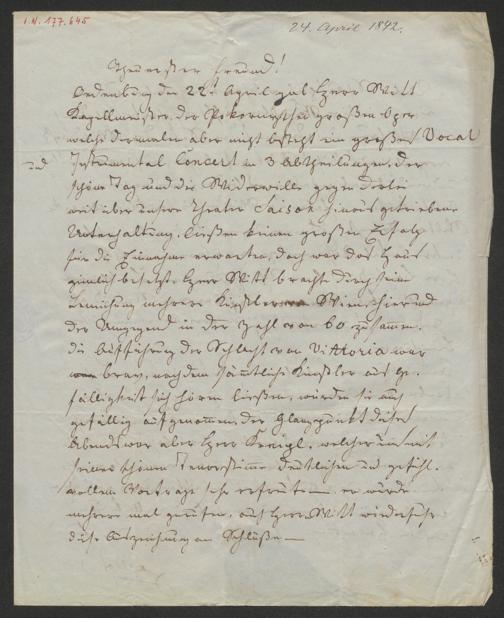 I.N. 177.645
24. April 1842.
Theuerster Freund!
Oedenburg den 22t April gab Herr Witt
Kapellmeister der Pokornyschen großen Oper
welche dermalen aber nicht besteht ein großes Vocal
und
Instrumental Concert in 3 Abtheilungen. Der
schöne Tag und die Widerwille gegen derlei
weit über unsere Theater Saison hinaus getriebene
Unterhaltung, ließen keinen großen Erfolg
für die Einnahme erwarten, doch war das Haus
ziemlich besetzt. Herr Witt brachte durch seine
Bemühung mehrere Künstler von Wien, hier und
der Umgegend in der Zahl von 60 zusamen.
Die Aufführung der Schlacht von Vittoria war
brav, nachdem sämtliche Künstler aus Ge-
fälligkeit sich hören ließen, wurden sie auch
gefällig aufgenommen, der Glanzpunkt dieses
Abends war aber Herr Kreipl, welcher uns mit
seiner schönen Tenorstimme deutlichen und gefühl-
vollem Vortrage sehr erfreute — er wurde
mehrere mal gerufen, auch Herrn Witt wiederfuhr
diese Auszeichnung am Schluße —